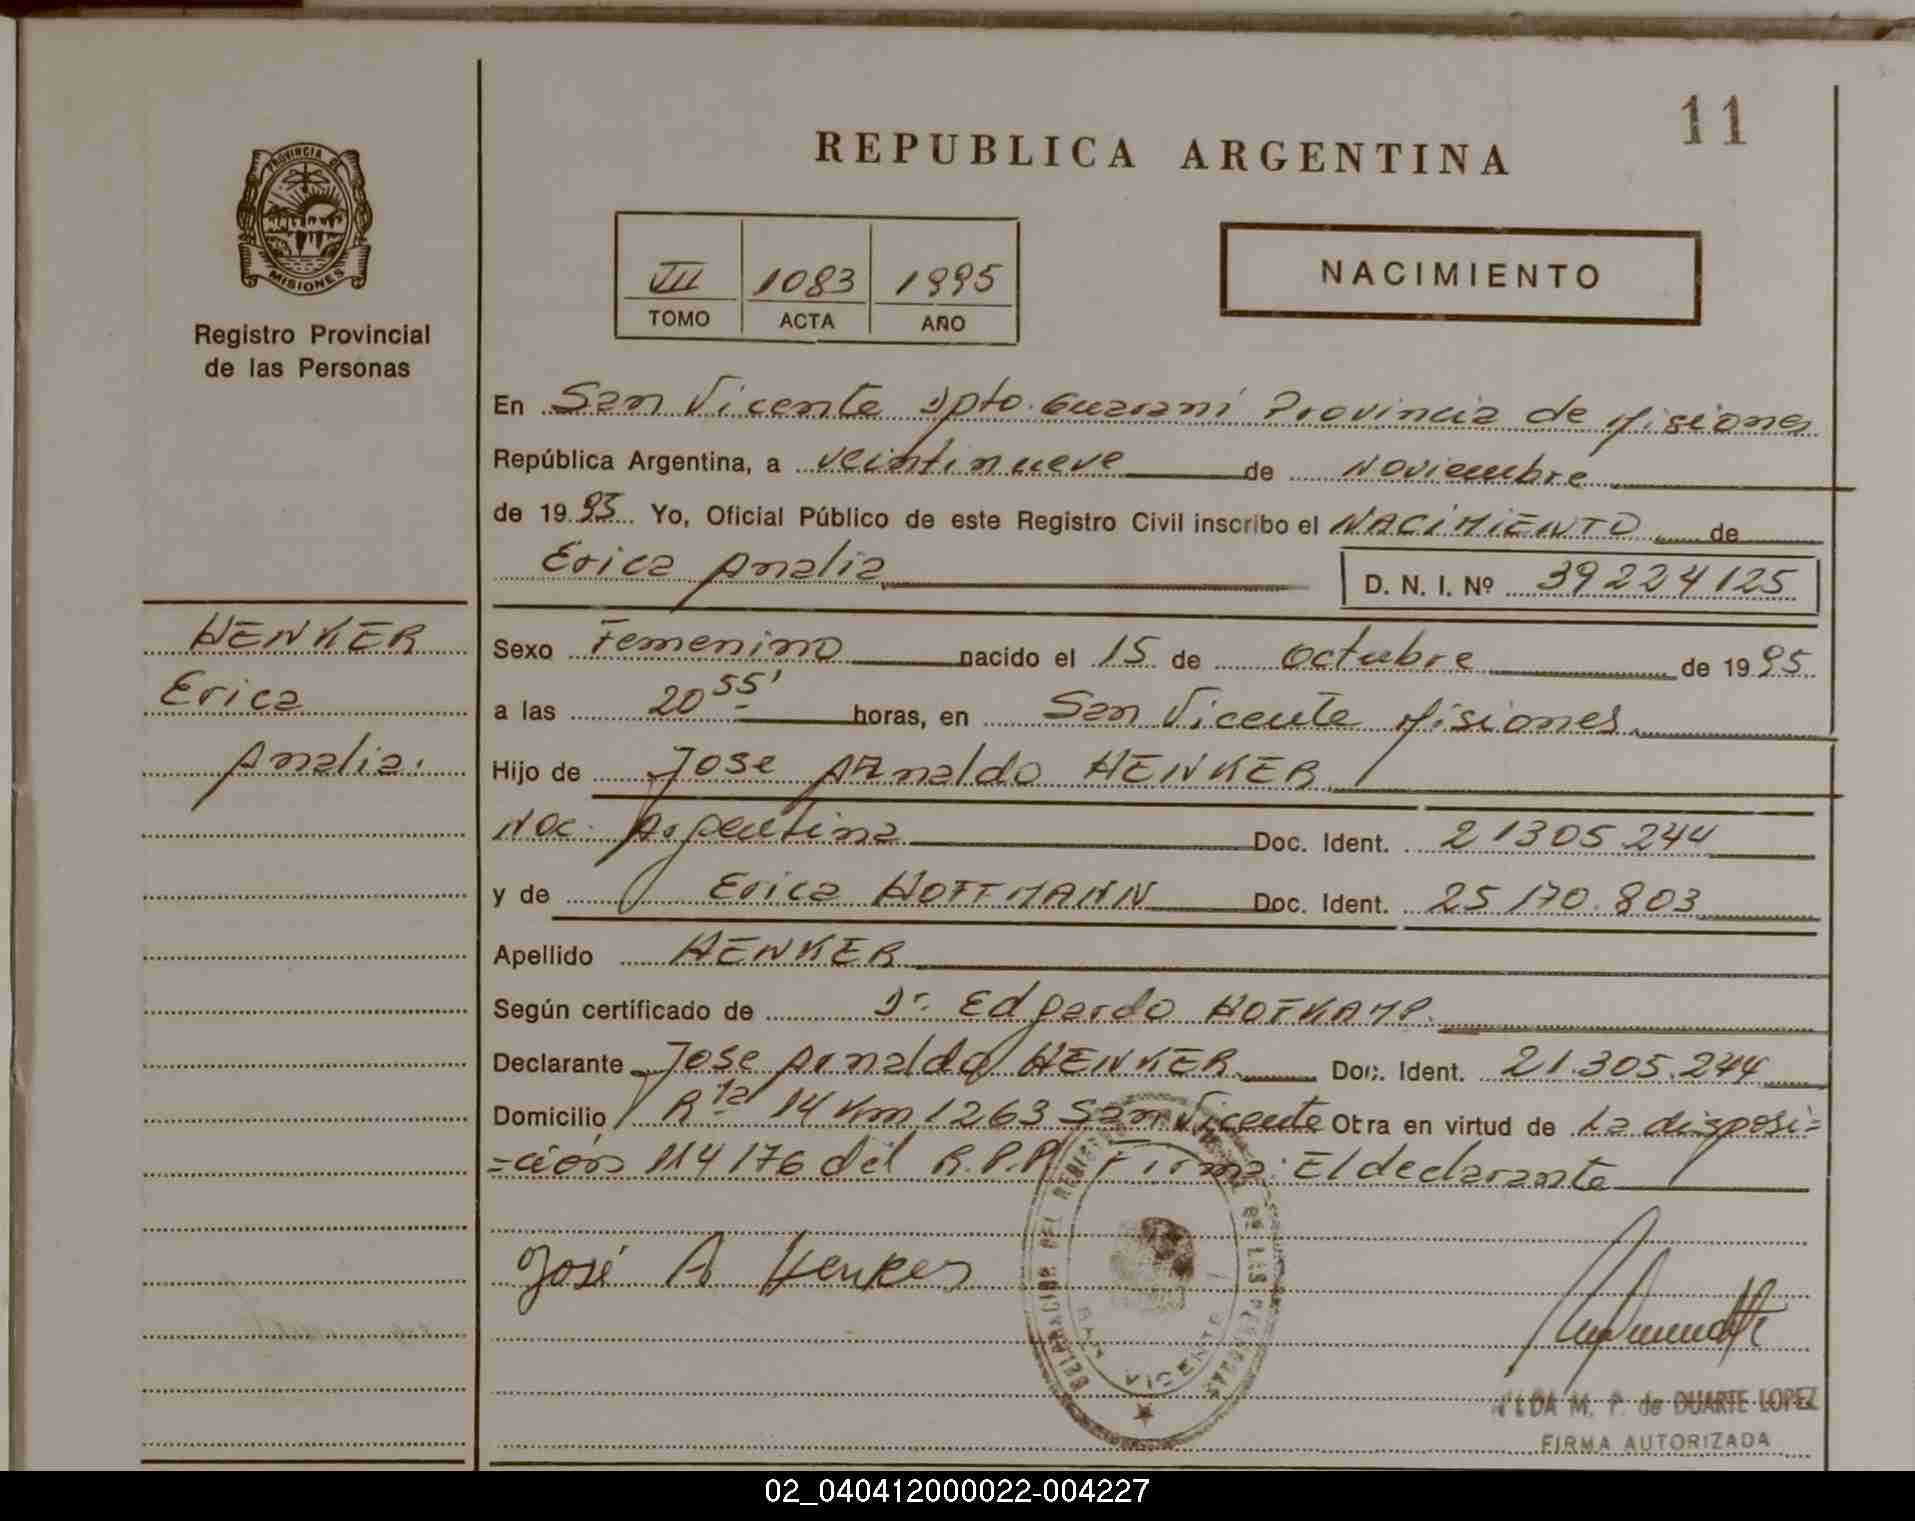 11
REPUBLICA ARGENTINA
PROVINCIA DE
MISIONES
Registro Provincial
de las Personas
VII 1083 1995
TOMO ACTA AÑO
NACIMIENTO
En San Vicente Dpto. Guaraní Provincia de Misiones
República Argentina, a veintinueve de Noviembre
de 1995 Yo, Oficial Público de este Registro Civil inscribo el NACIMIENTO de
Erica Analia D. N. I. Nº 39224125
HENKER
Erica
Analia.
Sexo Femenino nacido el 15 de octubre de 1995
a las 20 55' horas, en San Vicente Misiones
Hijo de Jose Arnaldo HENKER
Nac. Argentina Doc. Ident. 21305.244
y de Erica HOFFMANN Doc. Ident. 25.170.803
Apellido HENKER
Según certificado de Dr. Edgardo HOFKAMP.
Declarante Jose Arnaldo HENKER Doc. Ident. 21.305.244
Domicilio Rta 14 Km 1263 San Vicente Otra en virtud de La disposi=
=ción 114/76 del R.P.P. Firma: El declarante
José A Henker
DELEGACION DEL REGISTRO DE LAS PERSONAS
SAN VICENTE
M. P. de DUARTE LOPEZ
FIRMA AUTORIZADA
02_040412000022-004227